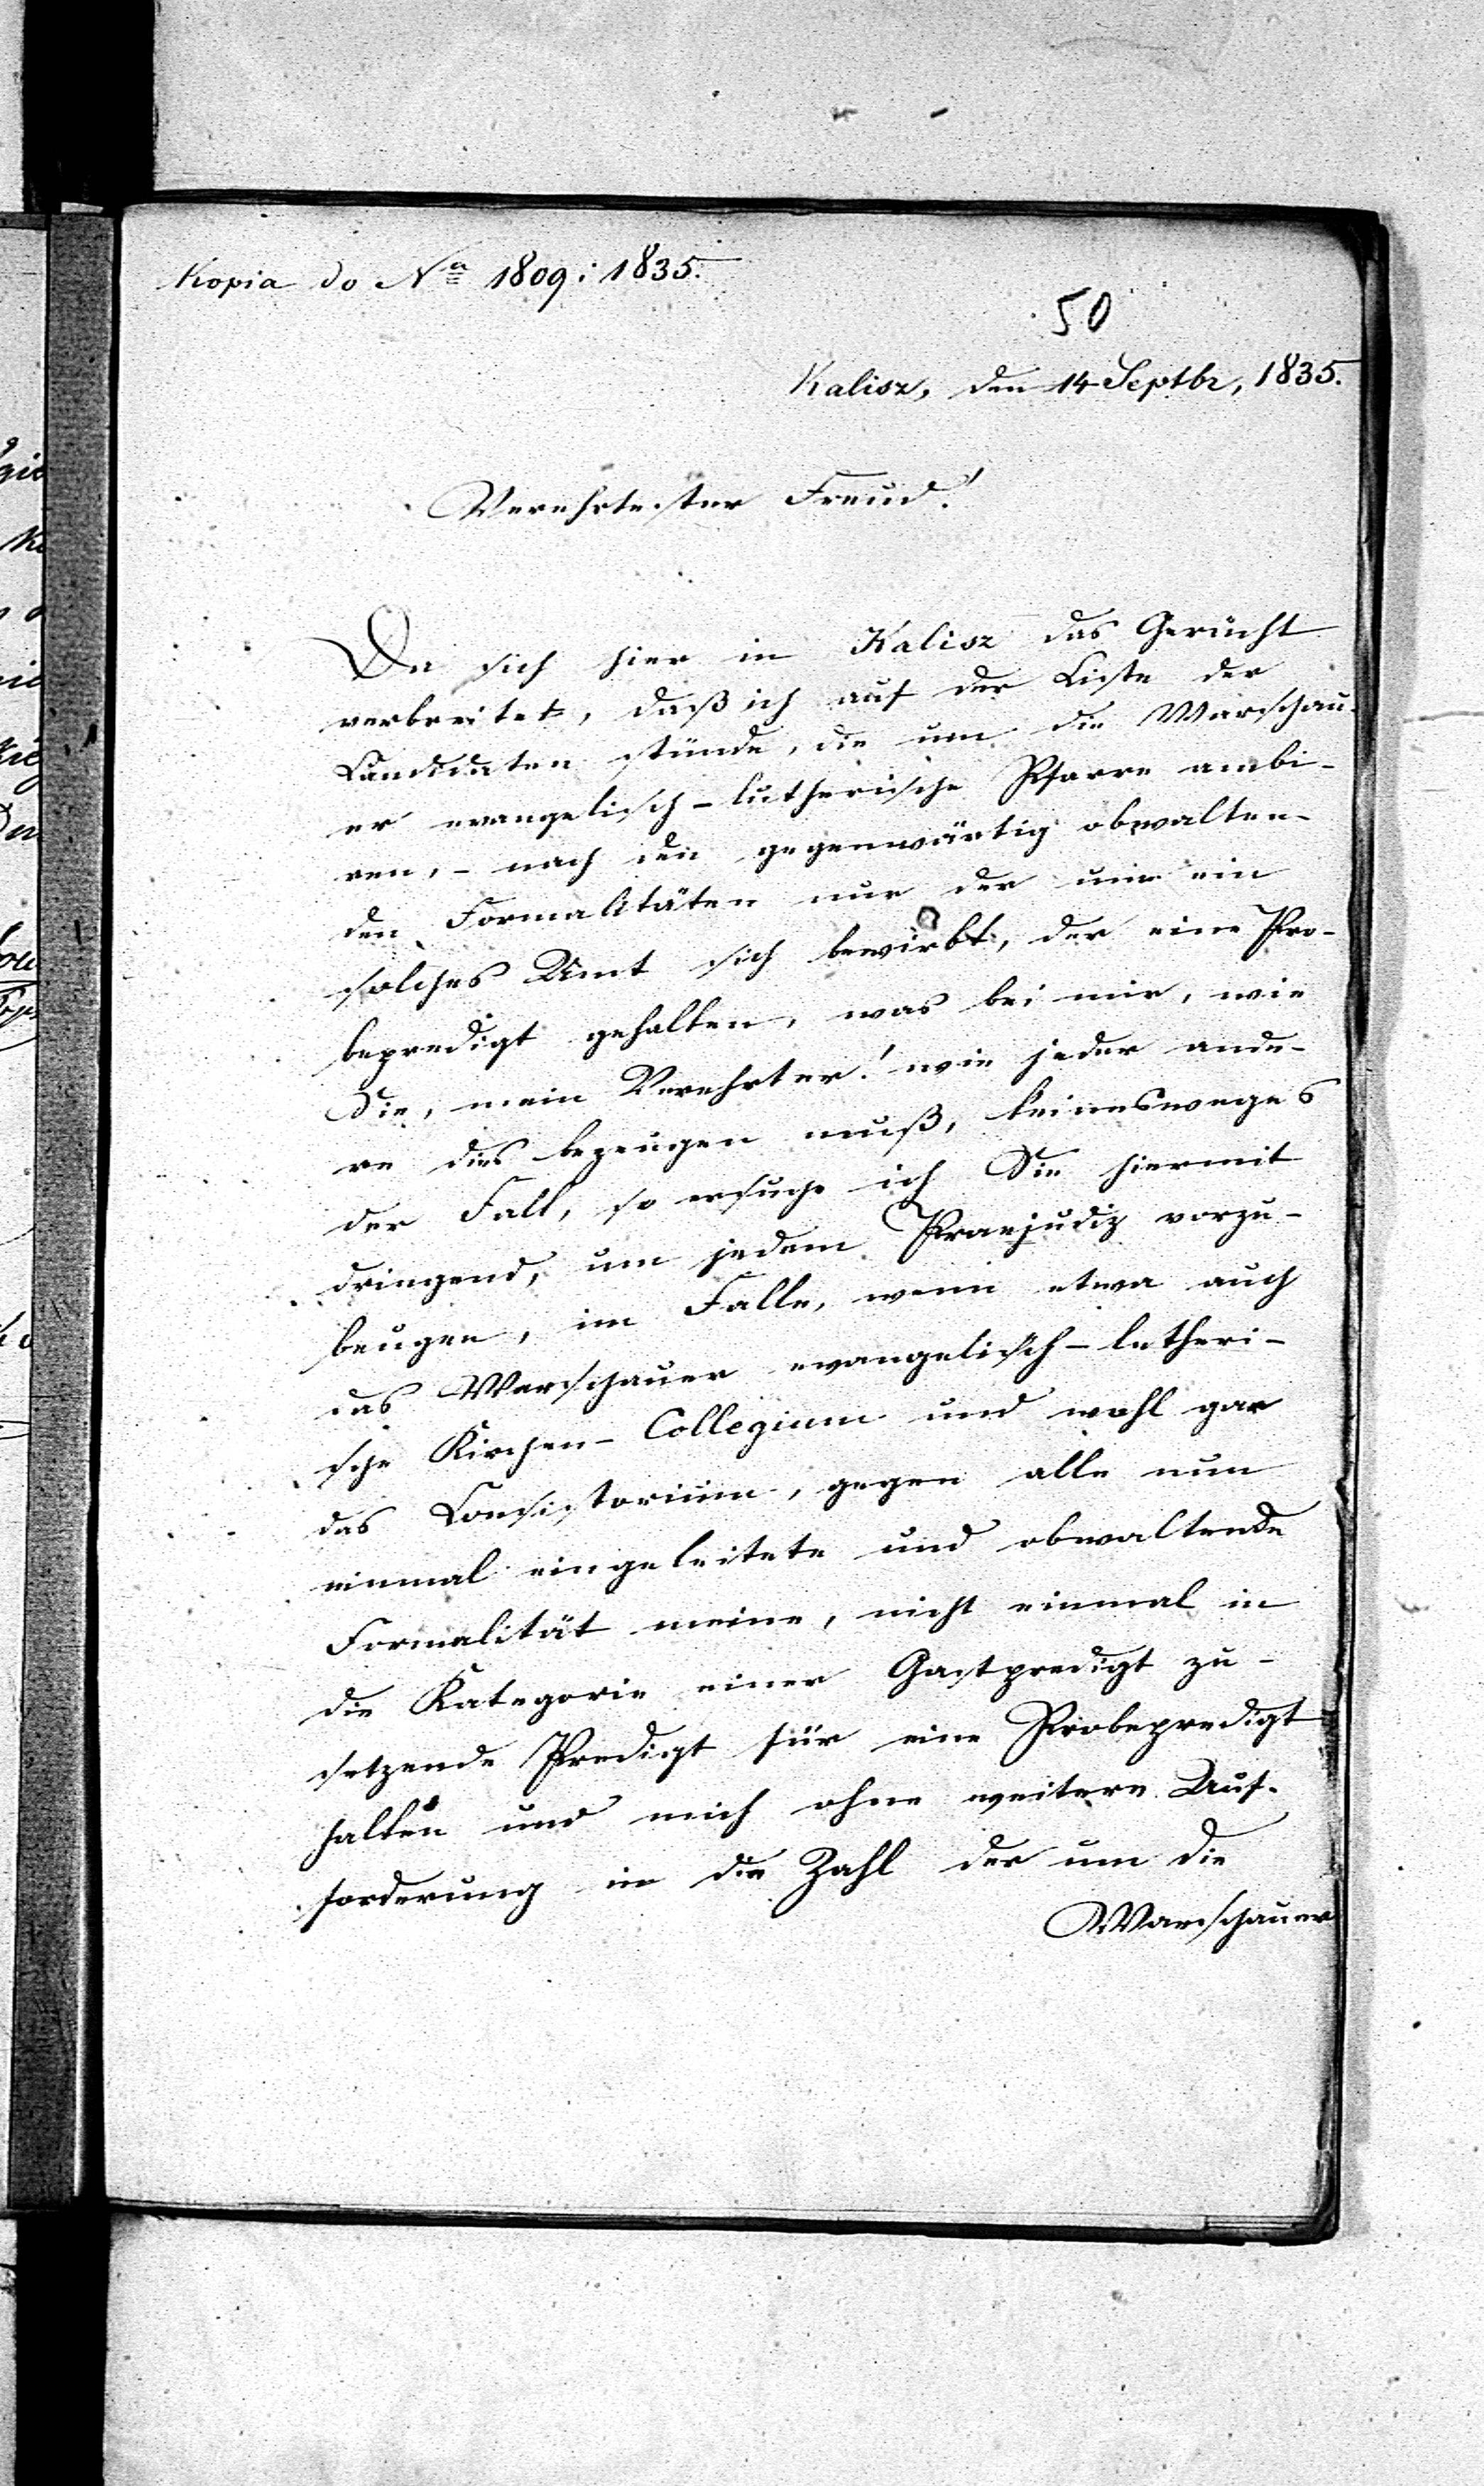 Kopia do Nª 1809 : 1835.
50
Kalisz, den 14 Septbr, 1835.
Verehrtester Freud!
Da sich hier in Kalisz das Gerücht
verbreitet, daß ich auf der Liste der
Candidaten stünde, die um die Warschau-
er evangelisch-lutherische Pfarre ambi-
ren, - nach den gegenwärtig obwalten-
den Formalitäten nur der um ein
solches Amt sich bewirbt, der eine Pro-
bepredigt gehalten, was bei mir, wie
Sie, mein Verehrter! wie jeder ande-
re dies bezeugen muß, keinesweges
der Fall, so ersuche ich Sie hiermit
dringend, um jedem Praejudiz vorzu-
beugen, im Falle, wenn etwa auch
das Warschauer evangelisch-lutheri-
sche Kirchen-Collegium und wohl gar
das Consistorium, gegen alle nun
einmal eingeleitete und obwaltende
Formalität meine, nicht einmal in
die Kategorie einer Gastpredigt zu-
setzende Predigt für eine Probepredigt
halten und mich ohne weitere Auf-
forderung in die Zahl der um die
Warschauer